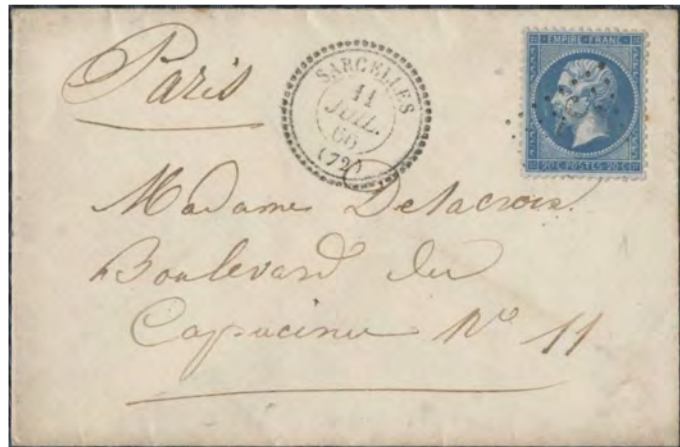 Paris
SARCELLES
11
JUIL.
66
(72)
EMPIRE FRANC
20 C POSTES 20 C
Madame Delacroix
Boulevard des
Capucines Nº 11